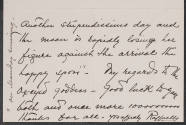 Another stupendissimo day and
the moon is rapidly losing her
figure against the arrival the
happy spoor - My regards to the
eyed goddess - Good luck to you
both and once more 1000000000
thanks for all -